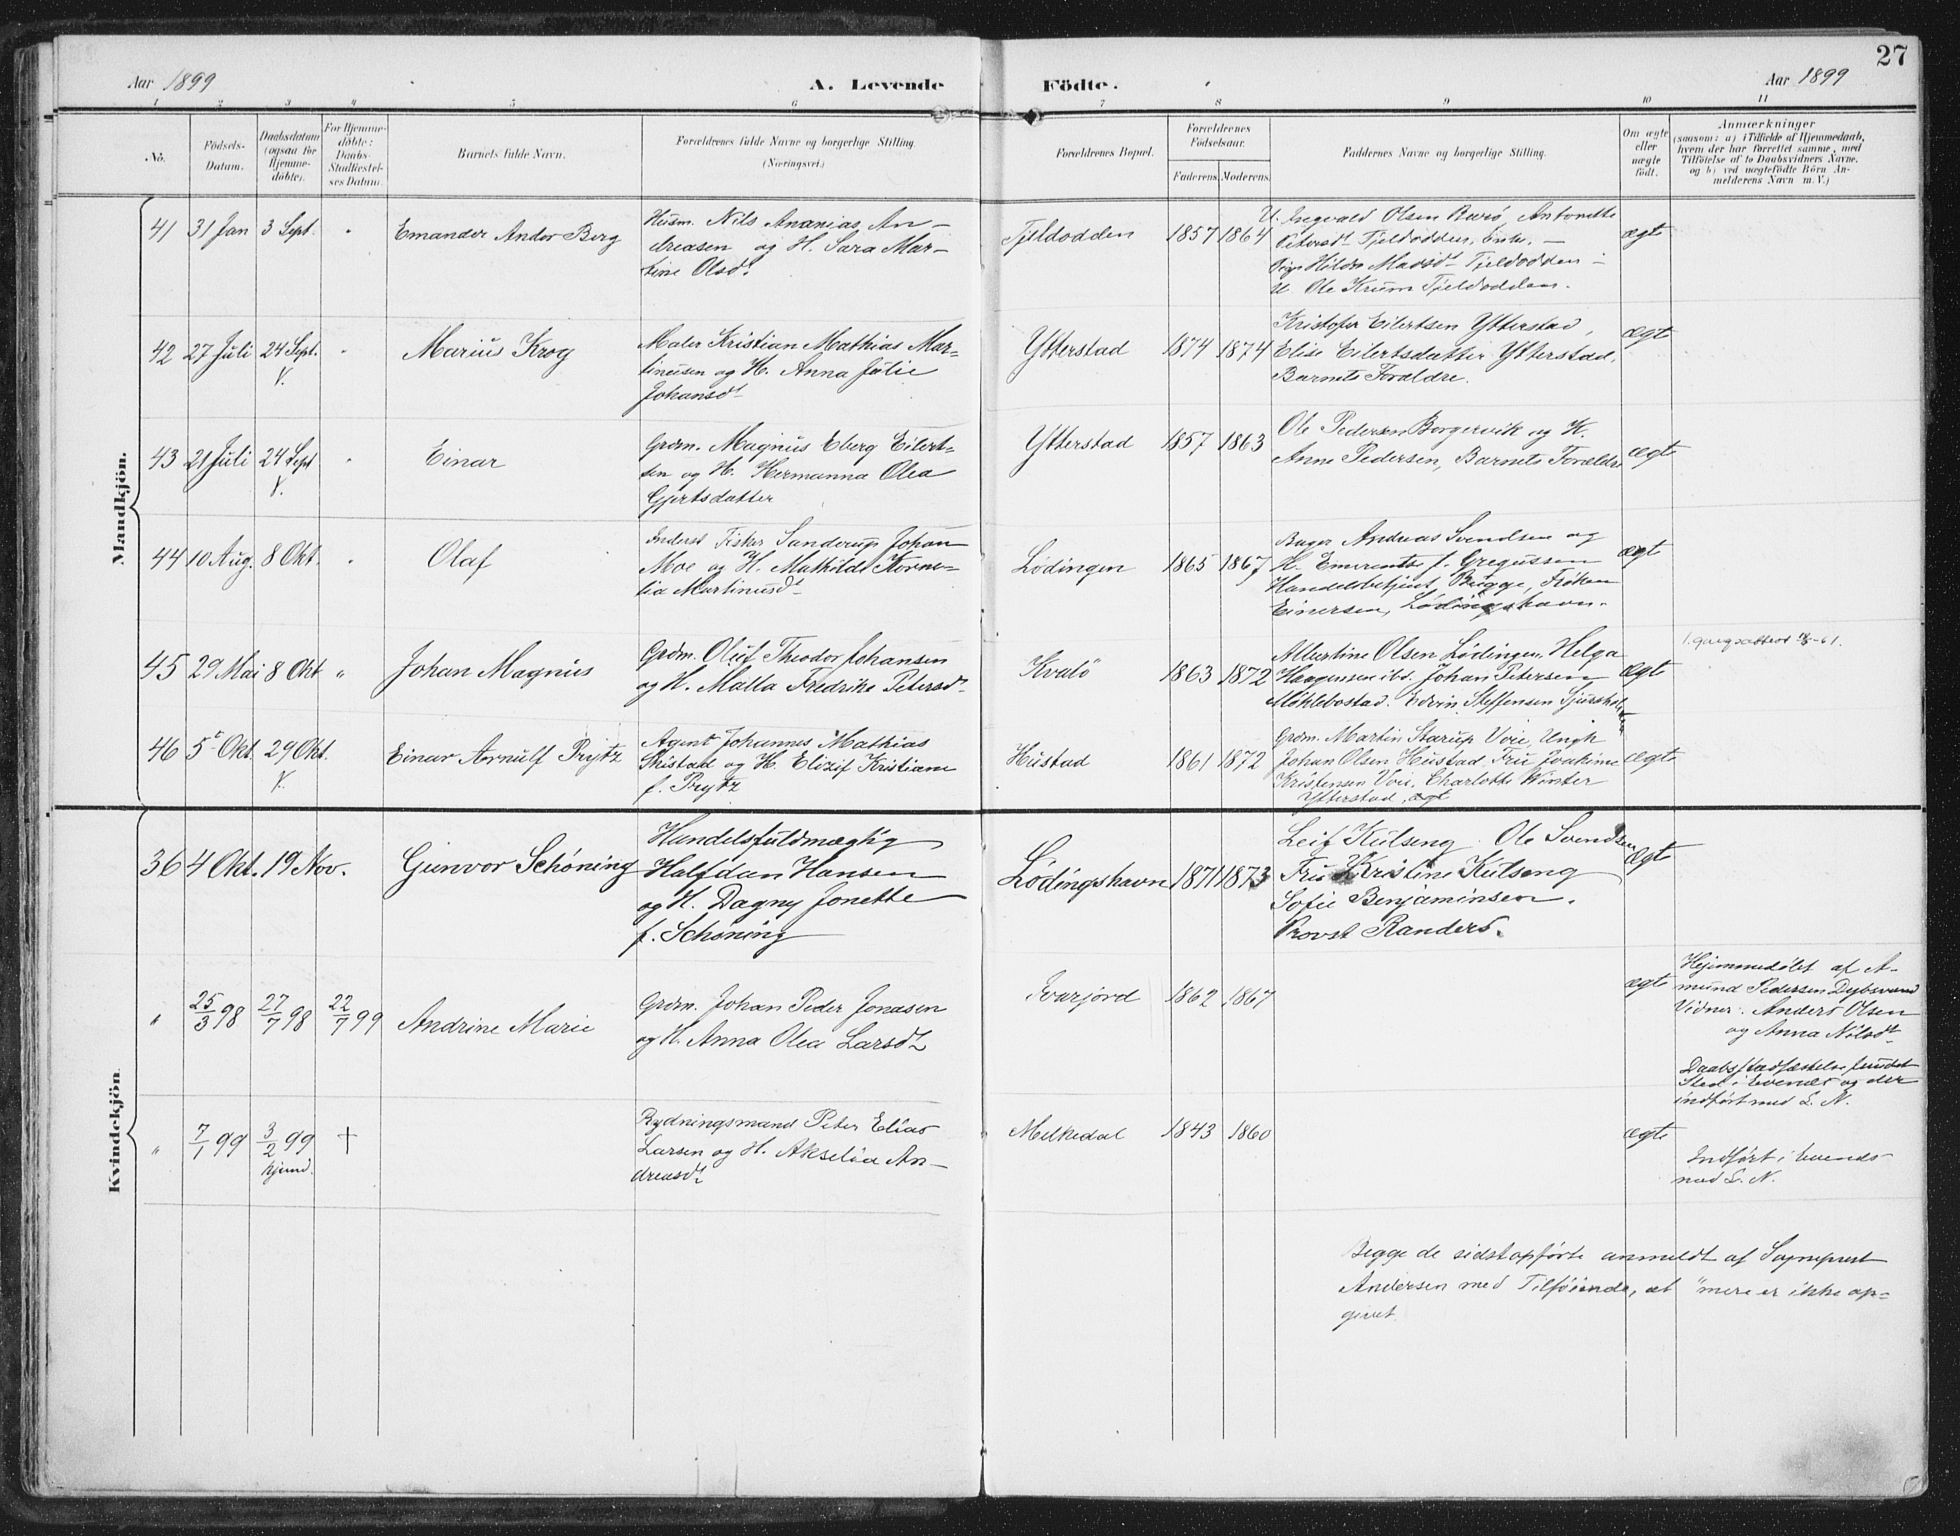 27
Aar 1899
A. Levende
Födte.
Aar 1899
1 2 3 4 5 6 7 8 9 10 11
No.
Födsels-
Datum.
Daabsdatum
(ogsaa for
Hjemme-
döbte).
For Hjemme-
döbte:
Daabs-
Stadfæstel-
ses Datum.
Barnets fulde Navn.
Forældrenes fulde Navne og borgerlige Stilling.
(Næringsvei.)
Forældrenes Bopæl.
Forældrenes
Födselsaar.
Faderens. Moderens.
Faddernes Navne og borgerlige Stilling.
Om ægte
eller
uægte
födt.
Anmærkninger
(saasom: a) i Tilfælde af Hjemmedaab,
hvem der har forrettet samme, med
Tilföielse af to Daabsvidners Navne.
og b) ved uægtefödte Börn An-
melderens Navn m. V.)
Mandkjön.
41 31 Jan 3 Sept. " Emander Andor Berg
Husm. Nils Ananias An-
dreasen og H. Sara Mar-
tine Olsd.
Tjeldodden 1857 1864
U. Ingvald Olsen Barö, Antonette
Petersdt Tjeldodden, Enke, -
Pige Hilda Madsdt Tjeldodden -
U. Ole Krum Tjeldodden.
ægte
42 27 Juli 24 Sept. " Marius Krog
V.
Maler Kristian Mathias Mar-
tinusen og H. Anna Julie
Johansdt
Ytterstad 1874 1874
Kristofer Eilertsen Ytterstad,
Elise Eilertsdatter Ytterstad,
Barnets Forældre.
ægte
43 21 Juli 24 Sept " Einar
V.
Grdm. Magnus Eberg Eilert-
sen og H. Hermanna Olea
Gjertsdatter
Ytterstad 1857 1863
Ole Pedersen Borgervik og H.
Anne Pedersen, Barnets Forældre
ægte
44 10 Aug. 8 Okt. " Olaf
Inderst Fisker Sanderup Johan
Moe og H. Mathilde Korne-
lia Martinusdt
Lødingen 1865 1867
Bager Andreas Svendsen og
H. Emerentse f. Gregussen
Handelsbetjent Bugge, Frøken
Einersen, Lødingshavn.
ægte
45 29 Mai 8 Okt " Johan Magnus
Grdm. Oluf Theodor Johansen
og H. Malla Fredrike Petersdt
Kvalö 1863 1872
Albertine Olsen Lødingen, Helga
Haagensen ibd. Johan Petersen
Møklebostad. Edvin Steffensen
ægte
46 5 Okt. 29 Okt. Einar Arnulf Prytz
V.
Agent Johannes Mathias
Skistad og H. Elizif Kristiane
f. Prytz
Hustad 1861 1872
Grdm. Martin Starup Voie, Ungk
Johan Olsen Hustad, Fru Joakime
Kristensen Voie, Charlotte Winter
Ytterstad
ægte
Kvindekjön
36 4 Okt. 19 Nov. Gunvor Schöning
Handelsfuldmægtig
Halfdan Hansen
og H. Dagny Jonette
f. Schöning
Lödingshavn 1871 1873
Leif Kulseng. Ole Svendsen
Fru Kristine Kulseng
Sofie Benjaminsen.
Provst Randers.
ægte
" 25/3 98 27/7 98 22/7 99 Andrine Marie
Grdm. Johan Peder Jonasen
og H. Anna Olea Larsdt
Ivarjord 1862 1867
ægte
Hjemmedøbt af A-
mund Pedersen Dybsvand
Vidner: Anders Olsen
og Anna Nilsdt
Daabsstadfæstelse fundet
Sted i Evenes og der
indført med L. N.
" 7/1 99 3/2 99 †
hjemd.
Rydningsmand Peter Elias
Larsen og H. Akselia An-
dreasdt
Melkedal 1843 1860
ægte
Indført i Evenes
med L. N.
Begge de sidstopførte anmeldt af Sogneprest
Andersen med Tilføiende, at "mere er ikke op-
givet.